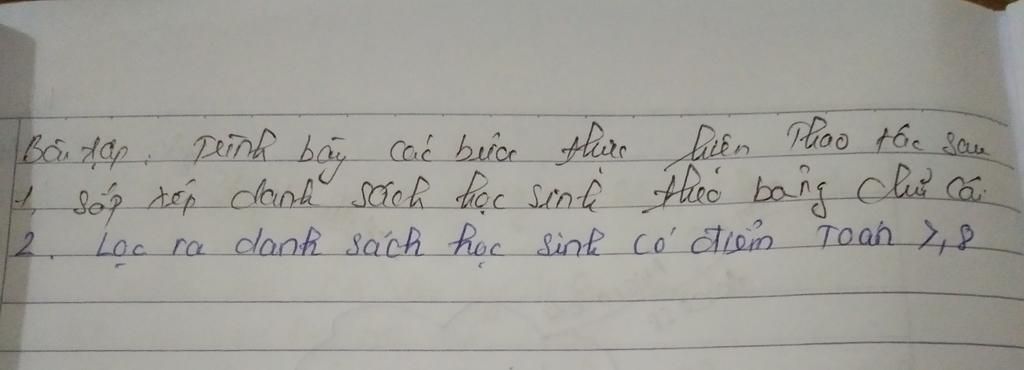 Bài tập. Trình bày các bước thực hiện thao tác sau
1, Sắp xếp danh sách học sinh theo bảng chữ cái
2. Lọc ra danh sách học sinh có điểm Toán >, 8